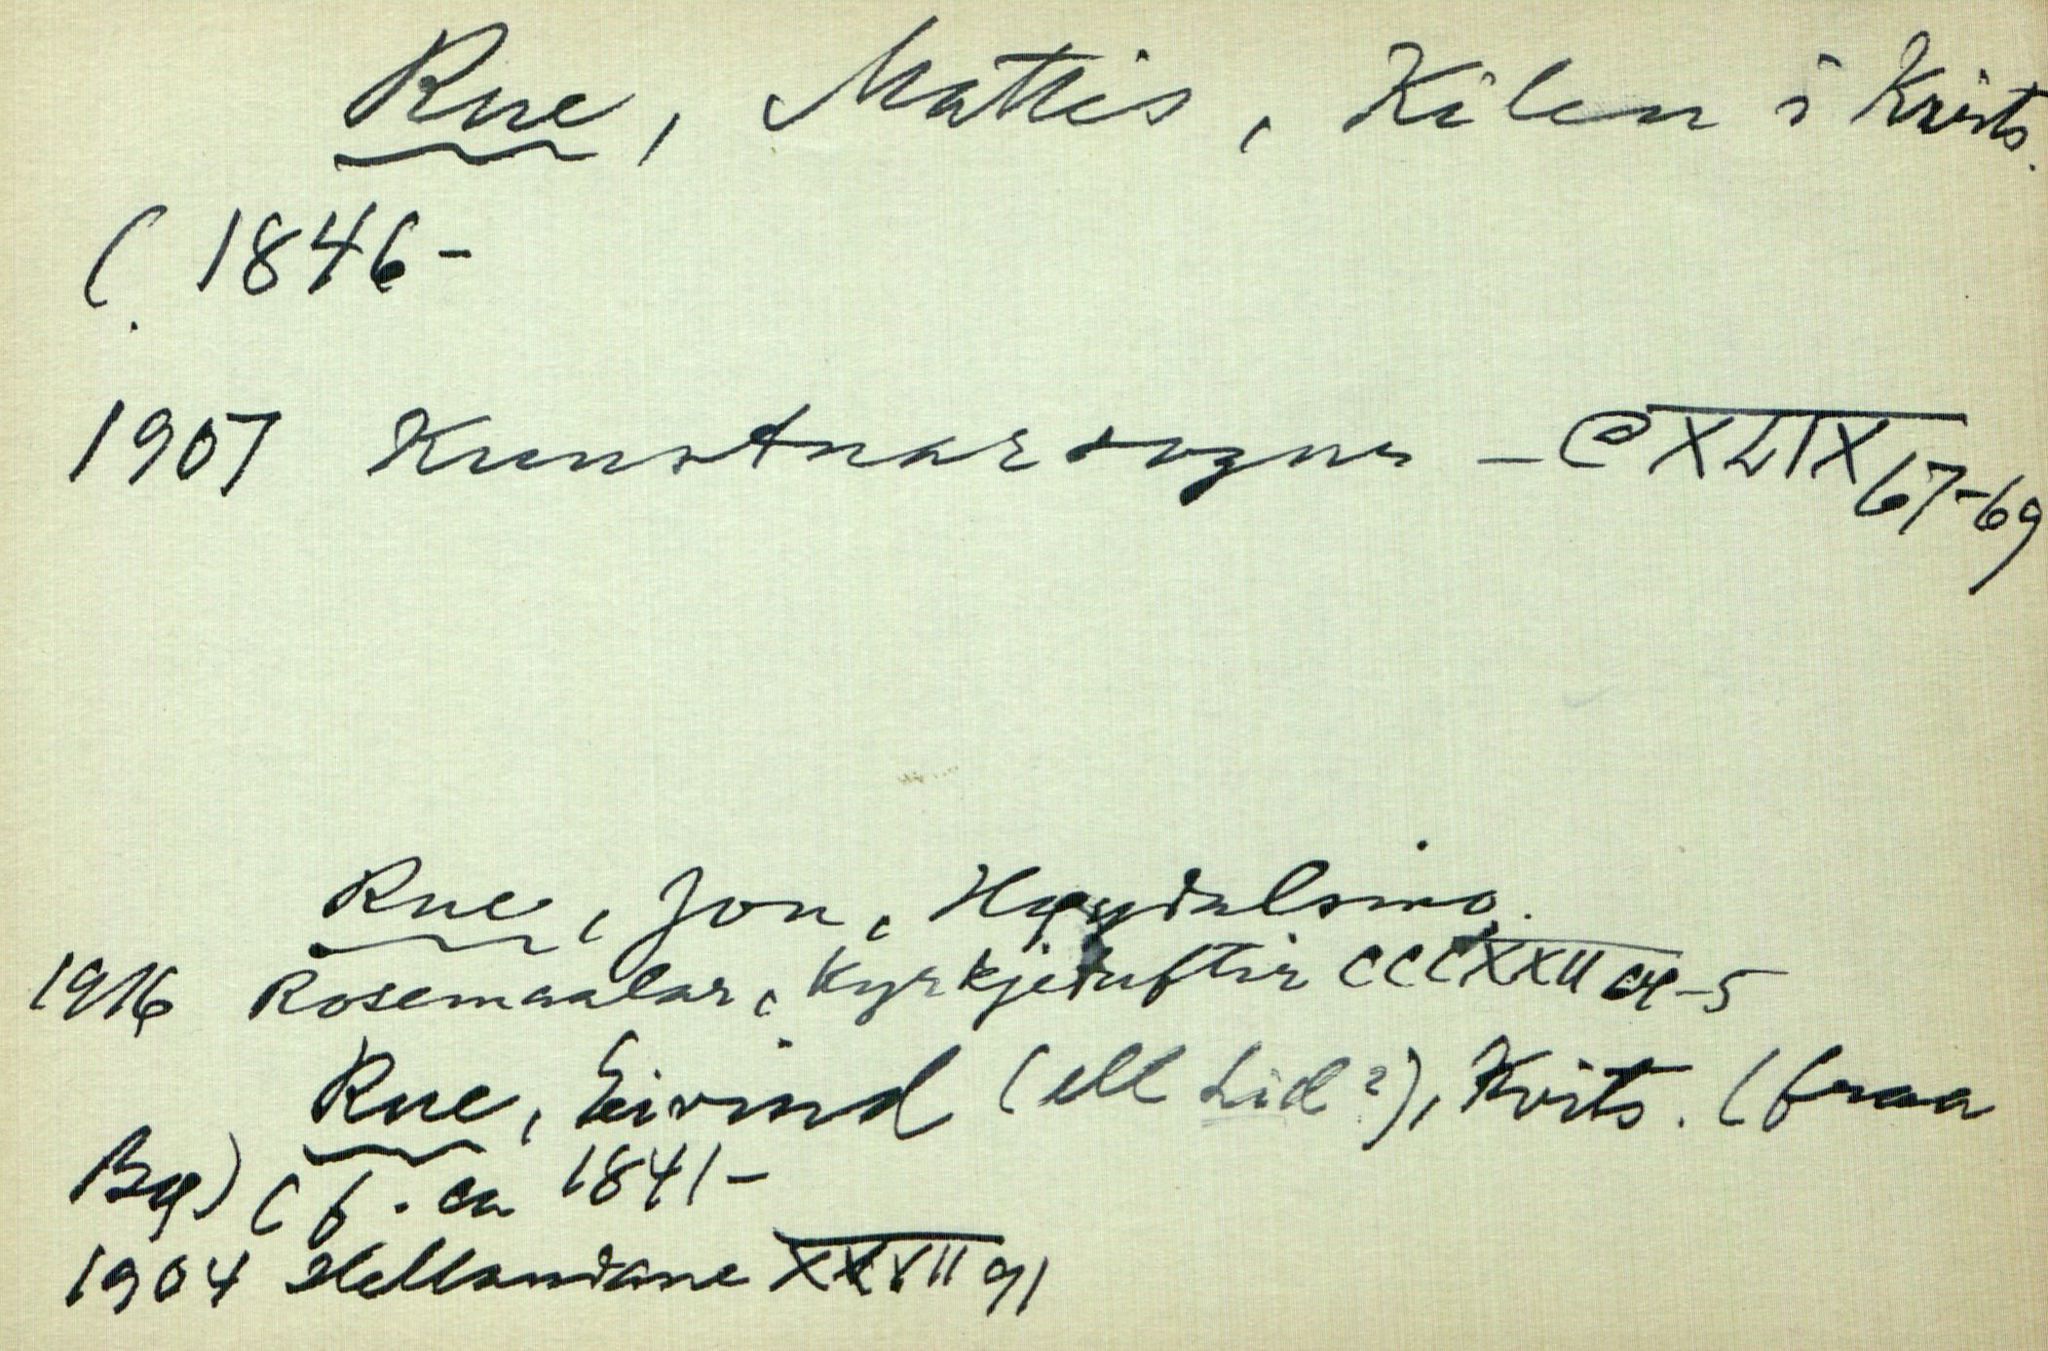 Rue, Mattis, Kilen i Kvits.
( 1846-
1907 Kunstnarsogur - @ XLIX 67-69
Rue, Jon, Høydalsmo.
1916 Rosemaalar, Kyrkjetuftir CCCXXII 04-5
Rue, Eivind (ell Lid?), Kvits. (fraa
Bø) (f. ca 1841-
1904 Hellomdane XXVII 91